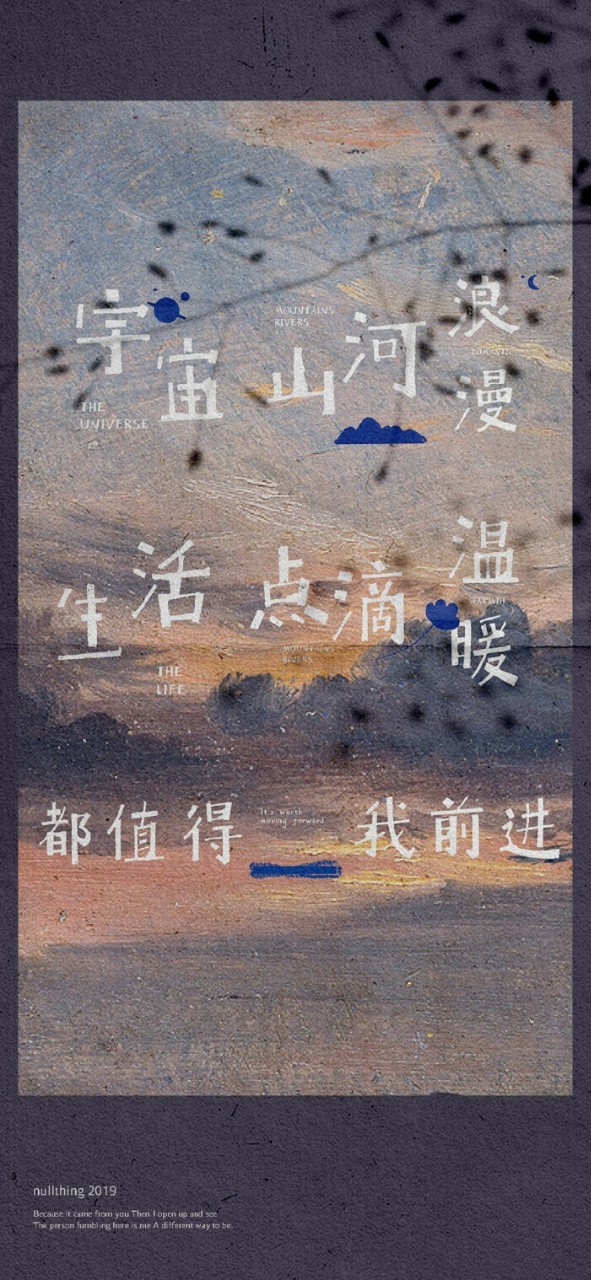 宇宙
山河
浪漫
MOUNTAINS
RIVERS
ROMANTIC
THE
UNIVERSE
生活
点滴
温暖
WARMTH
MOUNTAINS
RIVERS
THE
LIFE
都值得
It's worth
moving forward
我前进
nullthing 2019
Because it came from you Then I open up and see
The person fumbling here is me A different way to be.